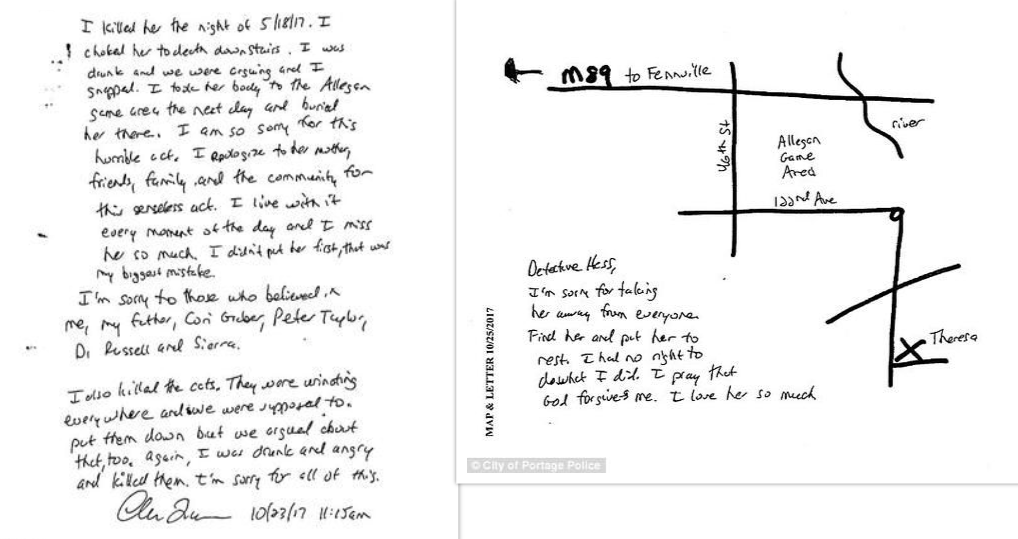 I killed her the night of 5/18/17. I
choked her to death downstairs. I was
drunk and we were arguing and I
snapped. I took her body to the Allegan
game area the next day and buried
her there. I am so sorry for this
horrible act. I apologize to her mother,
friends, family, and the community for
this senseless act. I live with it
every moment of the day and I miss
her so much. I didn't put her first, that was
my biggest mistake.
I'm sorry to those who believed in
me, my father, Cori Peter Taylor,
Di Russell and Sierra.
I also killed the cats. They were urinating
everywhere and we were supposed to
put them down but we argued about
that, too. Again, I was drunk and angry
and killed them. I'm sorry for all of this.
10/23/17 11:15am
M89 to Fennville
46th St
river
Allegan
Game
Area
122nd Ave
Theresa
Detective Hess,
I'm sorry for taking
her away from everyone.
Find her and put her to
rest. I had no right to
do what I did. I pray that
God forgives me. I love her so much
MAP & LETTER 10/25/2017
© City of Portage Police